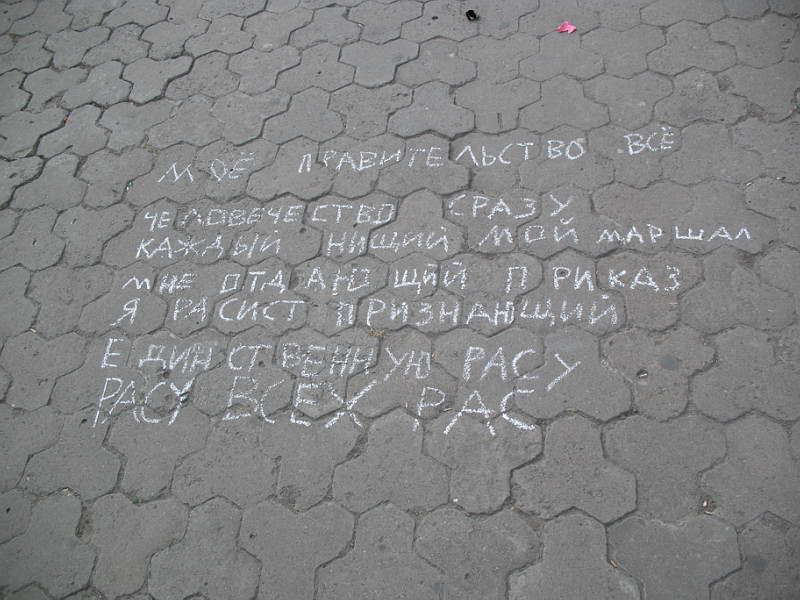 МОЁ ПРАВИТЕЛЬСТВО ВСЁ
ЧЕЛОВЕЧЕСТВО СРАЗУ
КАЖДЫЙ НИЩИЙ МОЙ МАРШАЛ
МНЕ ОТДАЮЩИЙ ПРИКАЗ
Я РАСИСТ ПРИЗНАЮЩИЙ
ЕДИНСТВЕННУЮ РАСУ
РАСУ ВСЕХ РАС